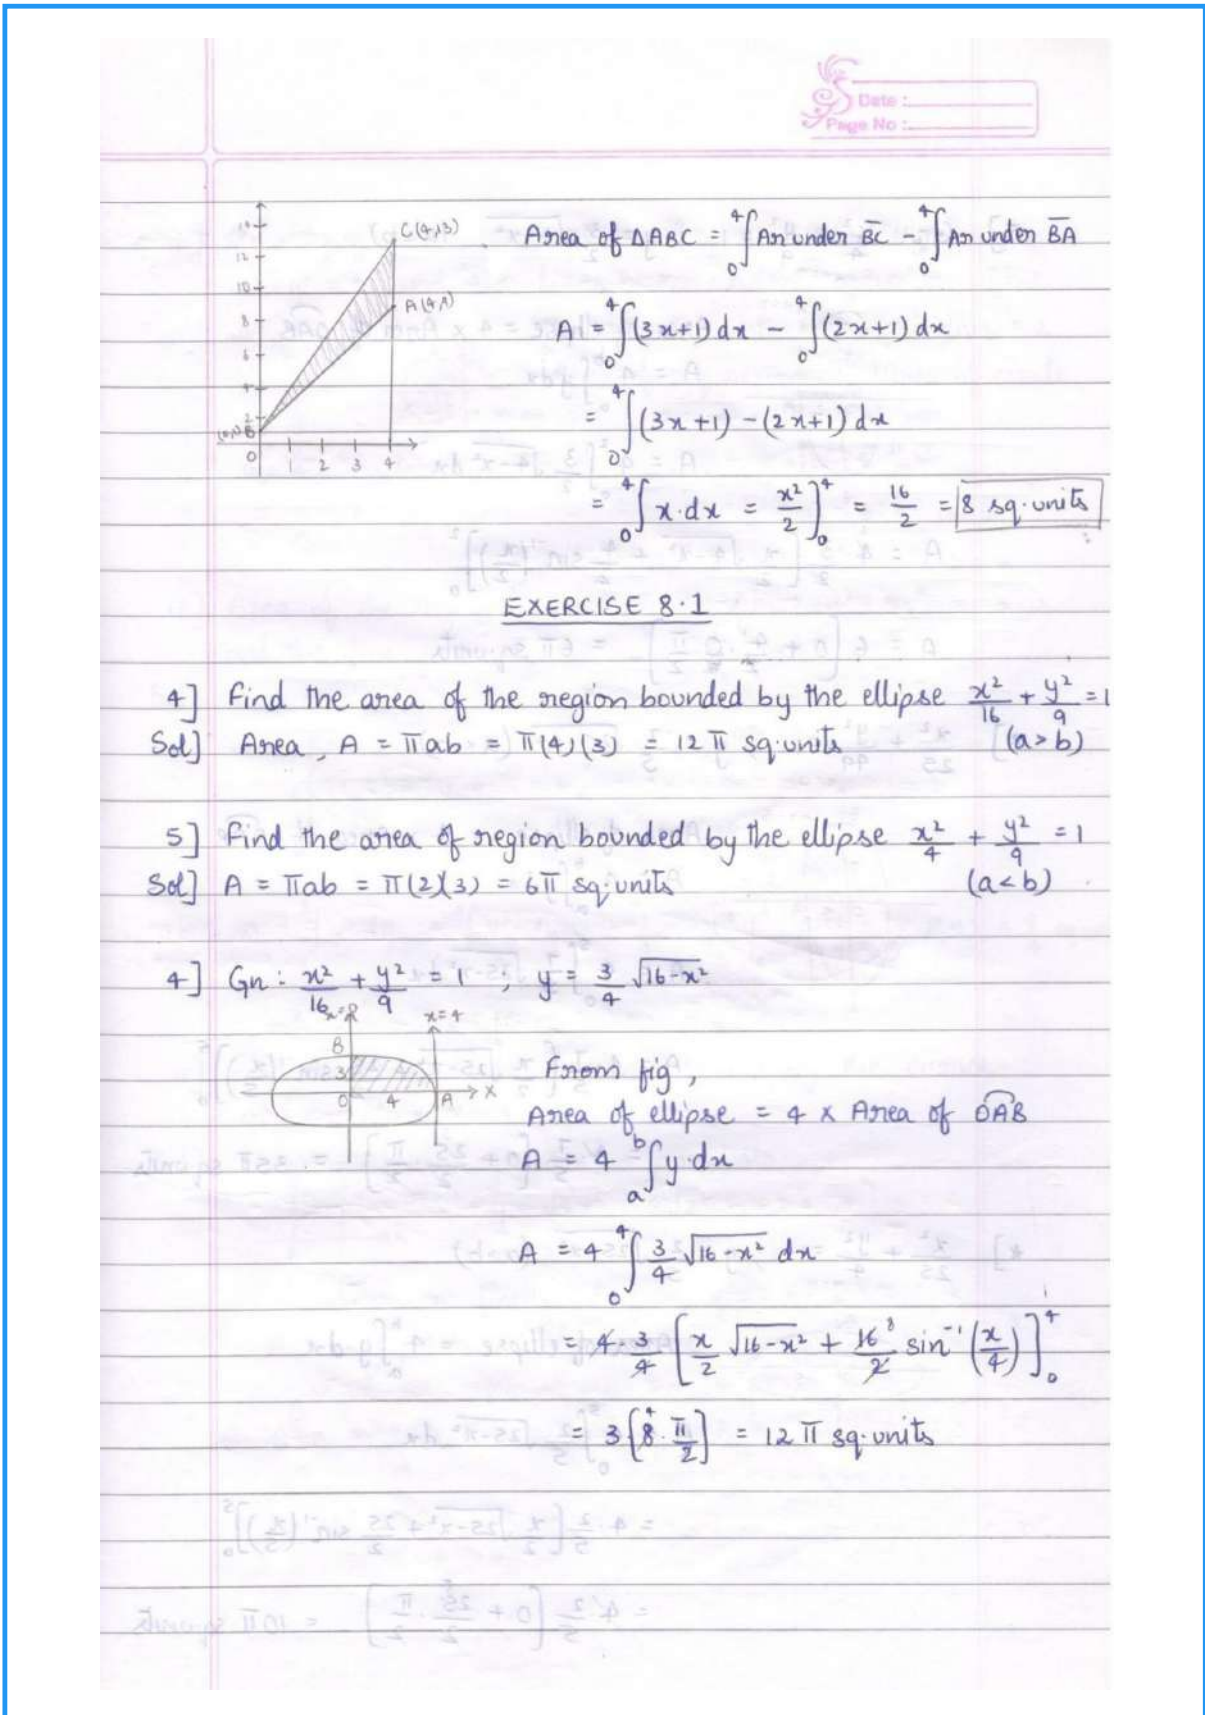 Date :
Page No :
14
12
10
8
6
4
2
C(4,13)
A(4,9)
B
0 1 2 3 4
Area of ΔABC = ₀⁴∫ Ar under B̅C̅ - ₀⁴∫ Ar under B̅A̅
A = ₀⁴∫(3x+1) dx - ₀⁴∫(2x+1) dx
= ₀⁴∫(3x+1) - (2x+1) dx
= ₀⁴∫ x·dx = x²/2 ]₀⁴ = 16/2 = 8 sq·units
EXERCISE 8·1
4] Find the area of the region bounded by the ellipse x²/16 + y²/9 = 1
Sol] Area, A = πab = π(4)(3) = 12π sq·units (a>b)
5] Find the area of region bounded by the ellipse x²/4 + y²/9 = 1
Sol] A = πab = π(2)(3) = 6π sq·units (a<b)
4] Gn: x²/16 + y²/9 = 1 ; y = 3/4 √16-x²
x=0 x=4
B
3
0 4 A X
From fig,
Area of ellipse = 4 x Area of OAB
A = 4 ₐᵇ∫ y·dx
A = 4 ₀⁴∫ 3/4 √16-x² dx
= 4·3/4 [x/2 √16-x² + 16 8/2 sin⁻¹(x/4)]₀⁴
= 3[8 4·π/2] = 12π sq·units